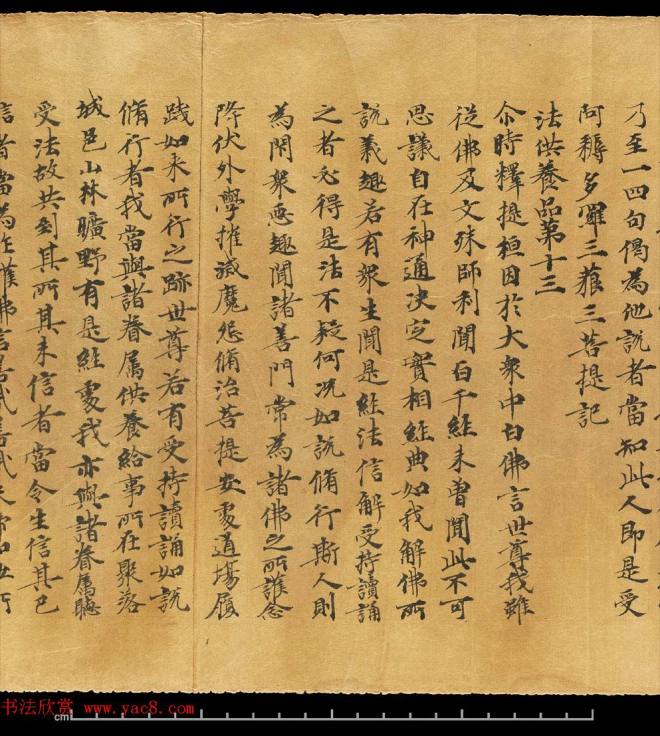 乃至一四句偈為他說者當知此人即是受
阿耨多羅三藐三菩提記
法供養品第十三
尒時釋提桓因於大衆中白佛言世尊我雖
從佛及文殊師利聞百千經未曾聞此不可
思議自在神通決定實相經典如我解佛所
說義趣若有衆生聞是經法信解受持讀誦
之者必得是法不疑何況如說脩行斯人則
為閇衆惡趣開諸善門常為諸佛之所護念
降伏外學摧滅魔怨脩治菩提安處道場履
踐如来所行之跡世尊若有受持讀誦如說
脩行者我當與諸眷属供養給事所在聚落
城邑山林曠野有是經處我亦與諸眷属聽
受法故共到其所其未信者當令生信其已
信者當為作護佛言善哉善哉天帝如汝所
书法欣赏 www.yac8.com
cm